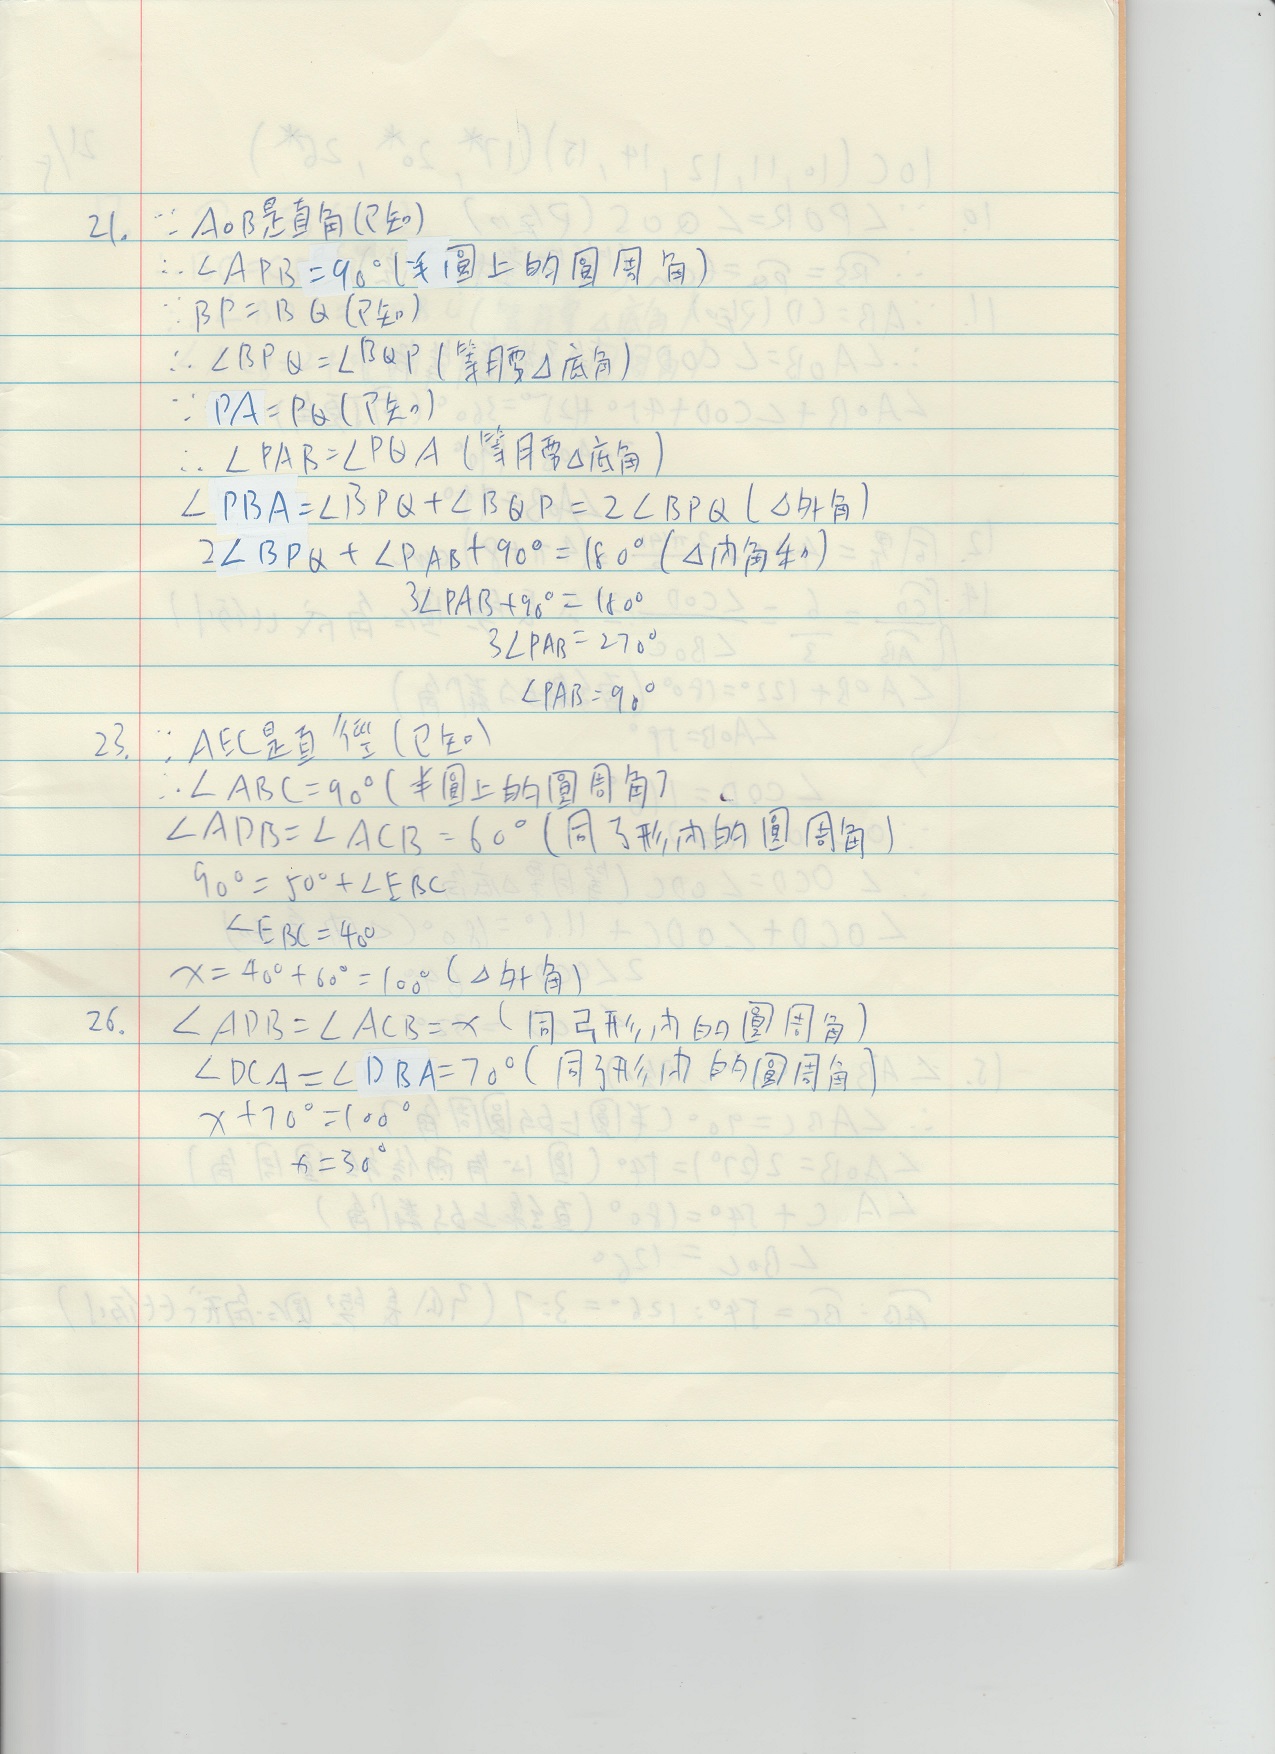 21. ∵ AOB是直角(已知)
∴∠APB=90°(半圓上的圓周角)
∵BP=BQ(已知)
∴∠BPQ=∠BQP(等腰△底角)
∵PA=PQ(已知)
∴∠PAB=∠PQA(等腰△底角)
∠PBA=∠BPQ+∠BQP=2∠BPQ(△外角)
2∠BPQ+∠PAB+90°=180°(△內角和)
3∠PAB+90°=180°
3∠PAB=270°
∠PAB=90°
23. ∵ AEC是直徑(已知)
∴∠ABC=90°(半圓上的圓周角)
∠ADB=∠ACB=60°(同弓形內的圓周角)
90°=50°+∠EBC
∠EBC=40°
x=40°+60°=100°(△外角)
26. ∠ADB=∠ACB=x(同弓形內的圓周角)
∠DCA=∠DBA=70°(同弓形內的圓周角)
x+70°=100°
x=30°